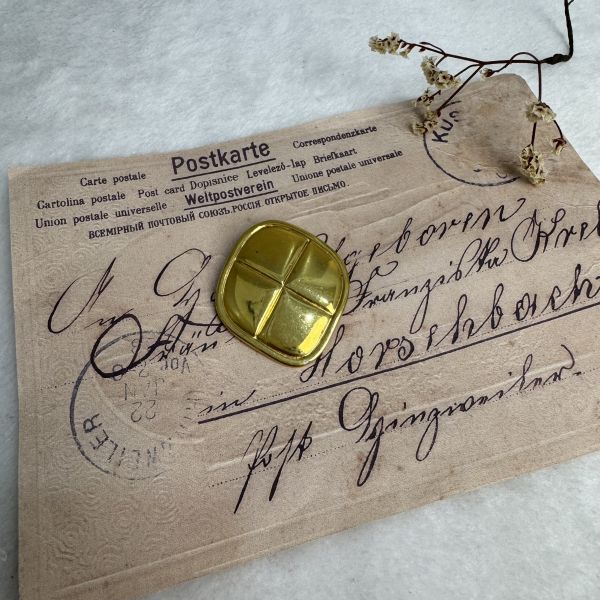 Postkarte
Carte postale Correspondenzkarte
Cartolina postale Post card Dopisnice Levelező-lap Briefkaart
Union postale universelle Weltpostverein Unione postale universale
ВСЕМІРНЫЙ ПОЧТОВЫЙ СОЮЗЪ.РОССІЯ ОТКРЫТОЕ ПИСЬМО.
geboren
Franziska
in Horschbach
Post Hinzweiler.
22